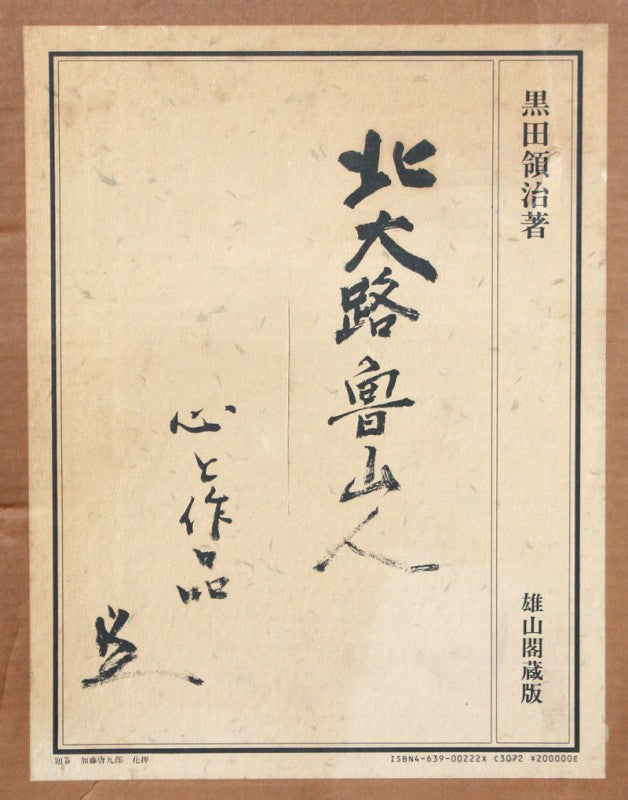 黒田領治著
雄山閣蔵版
北大路魯山人
心と作品
題簽 加藤唐九郎 花押
ISBN4-639-00222X C3072 ¥200000E